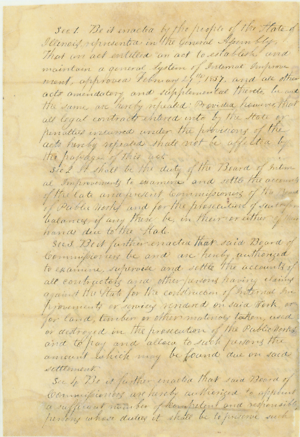 Sec 1. Be it enacted by the people of the State of
Illinois, represented in the General Assembly,
That an act entitled an act to establish and
maintain a general system of Internal Improve
ment, approved February 27th 1837, and all other
acts amendatory and supplemental thereto, be and
the same are hereby repealed. Provided however that
all legal contracts entered into by the State or
penalties incurred under the provisions of the
acts hereby repealed shall not be affected by
the passage of this act.
Sec 2. It shall be the duty of the Board of
Improvements to examine and settle the accounts
of the late and present Commissioners of the Board
of Public Works and for the prosecution of
balances if any there be in their or either of
hands due to the State.
Sec 3. Be it further enacted that said Board of
Commissioners be and are hereby authorized
to examine, supervise and settle the accounts of
all contractors and other persons having claims
against the State for the construction of Internal Im
provements or services rendered on said work, or
for land, timber or other materials taken, used
or destroyed in the prosecution of the Public works
and to pay and allow to such persons the
amount which may be found due on said
settlement.
Sec 4. Be it further enacted that said Board of
Commissioners are hereby authorized to appoint
a sufficient number of competent and responsible
persons whose duties it shall be to